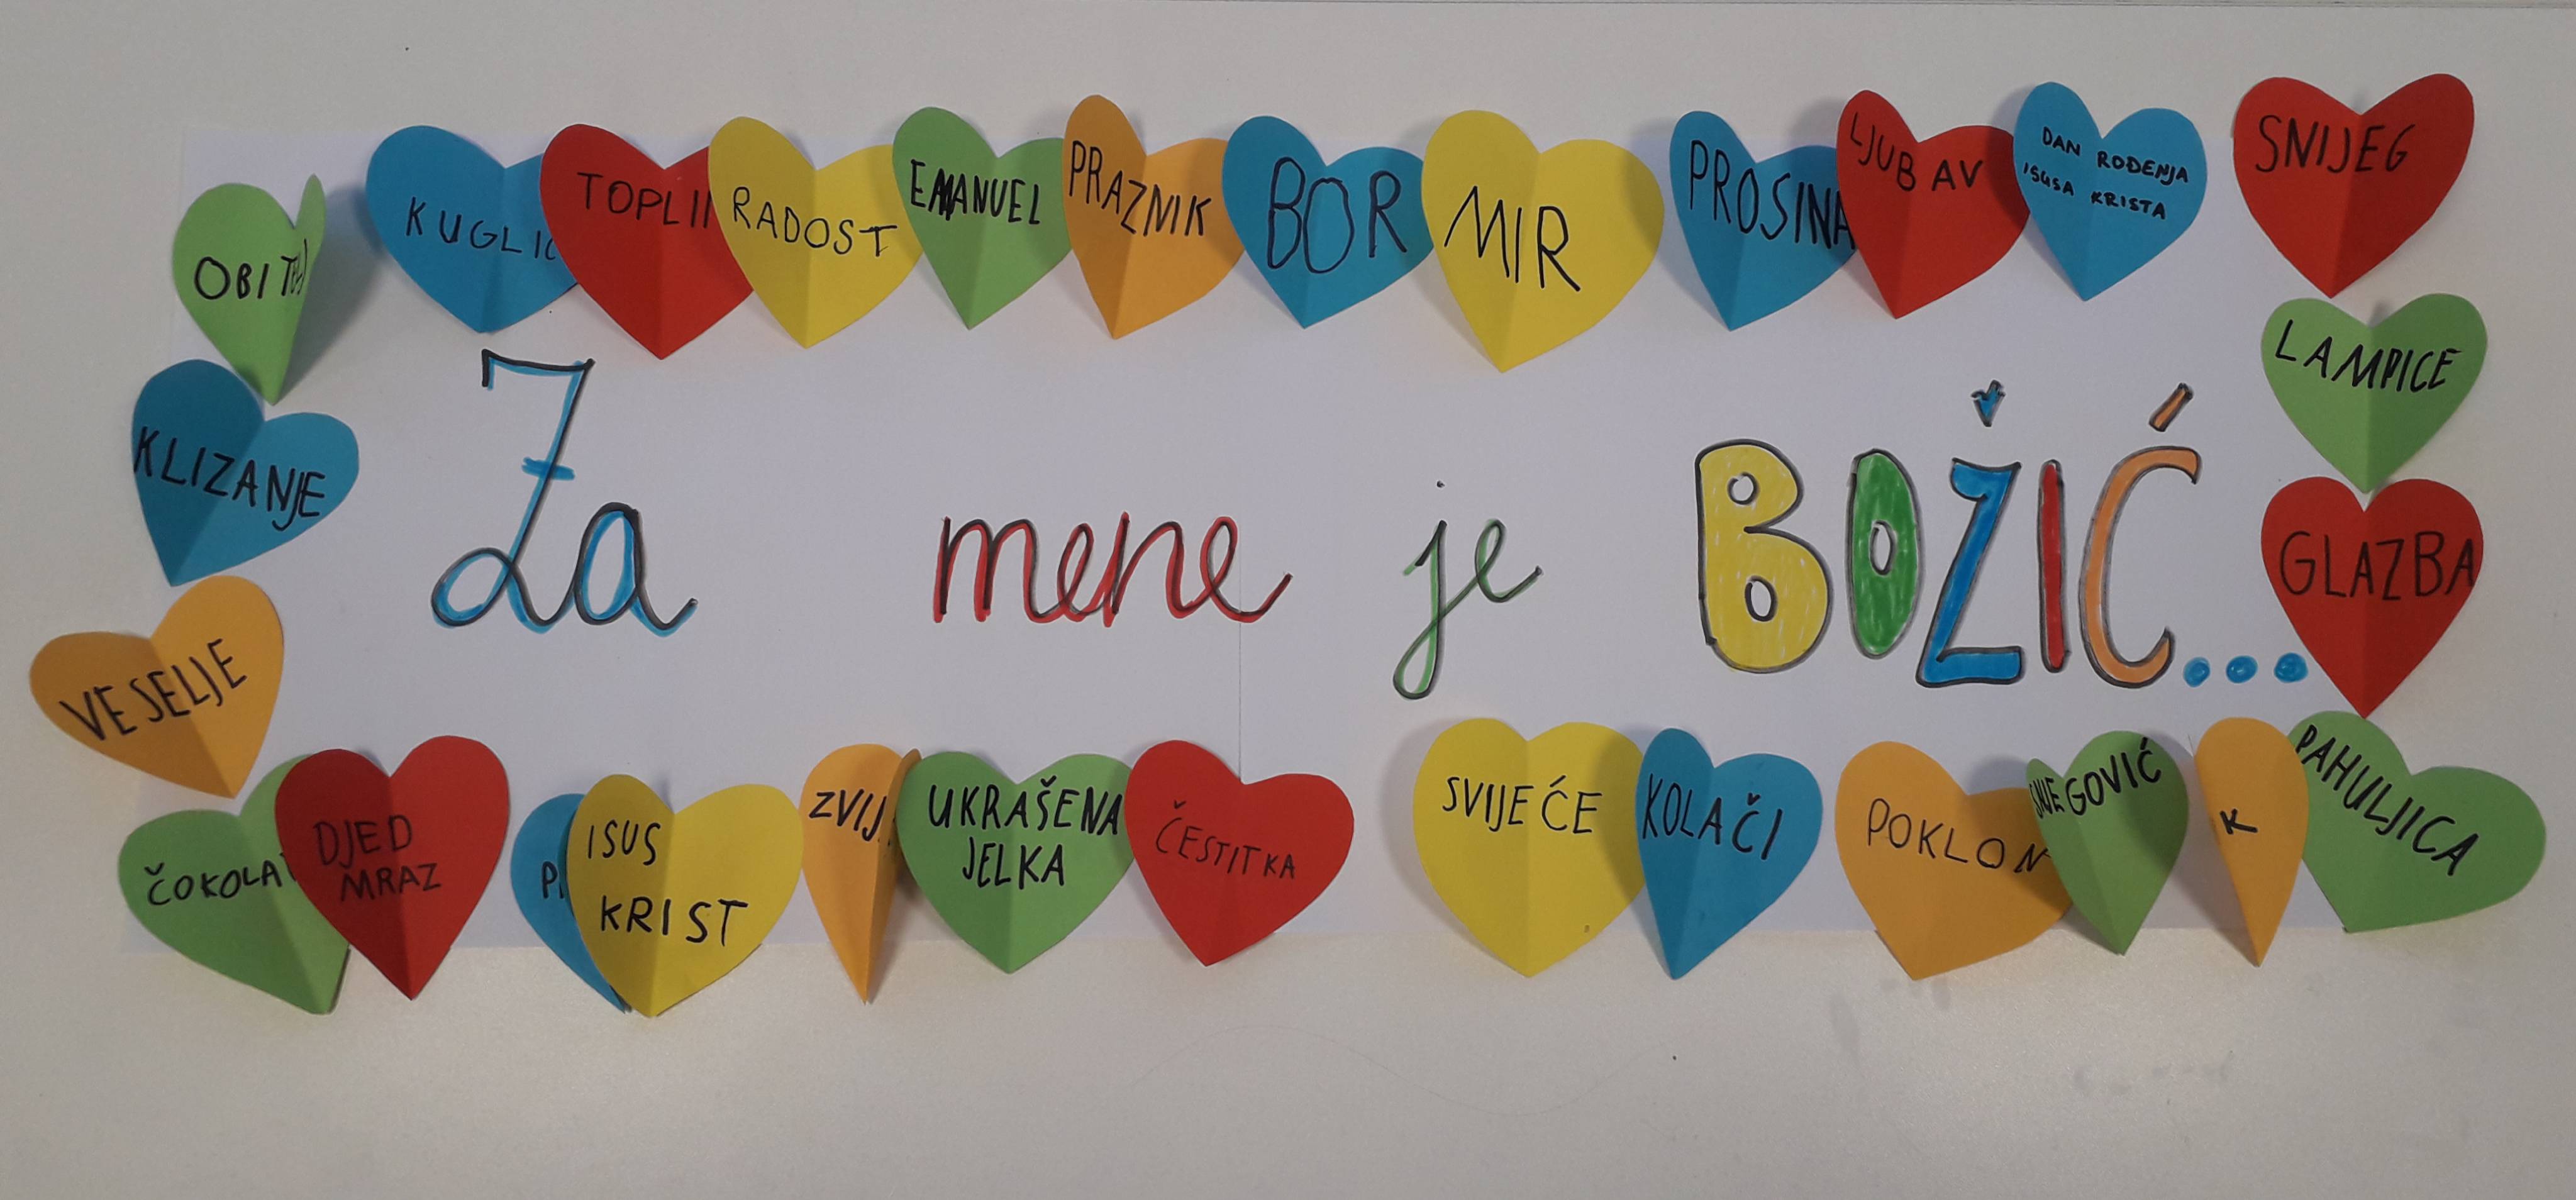 OBITELJ
KUGLIC
TOPLI
RADOST
EMANUEL
PRAZNIK
BOR
MIR
PROSINA
LJUBAV
DAN ROĐENJA
ISUSA KRISTA
SNIJEG
LAMPICE
KLIZANJE
Za mene je BOŽIĆ...
GLAZBA
VESELJE
ČOKOLA
DJED
MRAZ
ISUS
KRIST
ZVIJ
UKRAŠENA
JELKA
ČESTITKA
SVIJEĆE
KOLAČI
POKLON
SNJEGOVIĆ
K
PAHULJICA